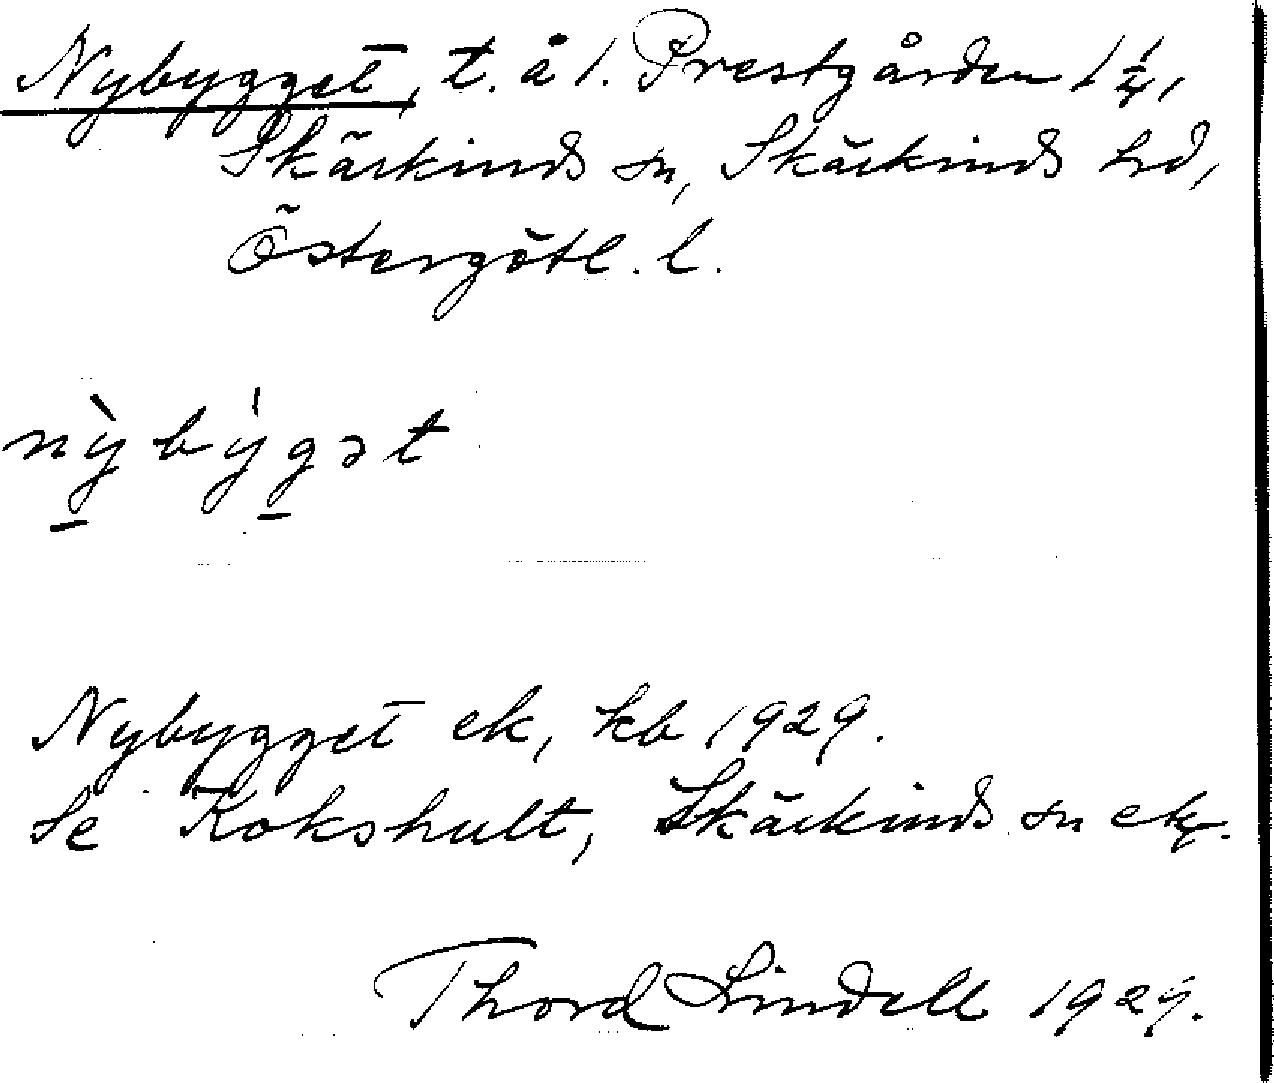 Nybygget, t. å l. Prestgården 1 1/4,
Skärkinds sn, Skärkinds hd,
Östergötl. l.
nỳbýgət
Nybygget ek, kb 1929.
Se Kokshult, Skärkinds sn ek.
Thord Lindell 1929.